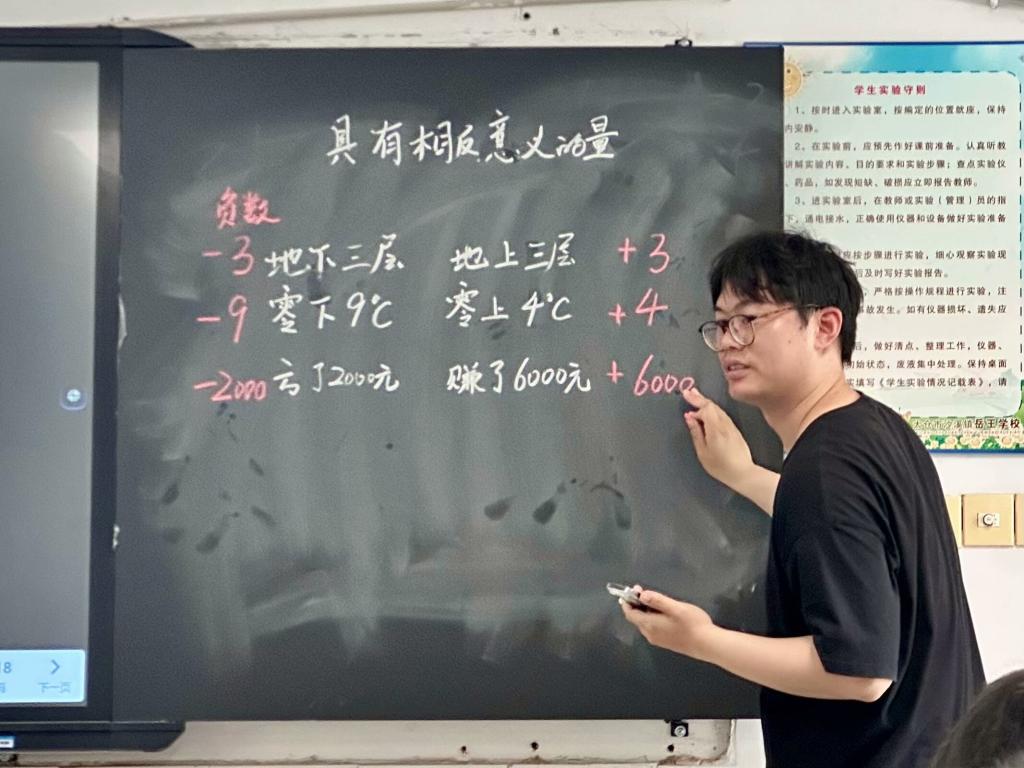 具有相反意义的量
负数
-3 地下三层 地上三层 +3
-9 零下9℃ 零上4℃ +4
-2000 亏了2000元 赚了6000元 +6000
学生实验守则
1、按时进入实验室，按编定的位置就座，保持
内安静。
2、在实验前，应预先作好课前准备。认真听教
讲解实验内容、目的要求和实验步骤；查点实验仪
、药品，如发现短缺、破损应立即报告教师。
3、进实验室后，在教师或实验（管理）员的指
下，通电接水，正确使用仪器和设备做好实验准备
应按步骤进行实验，细心观察实验现
后及时写好实验报告。
；严格按操作规程进行实验，注
故发生。如有仪器损坏、遗失应
后，做好清点、整理工作，仪器、
初始状态，废液集中处理。保持桌面
实填写《学生实验情况记载表》，请
太仓市沙溪镇岳王学校
18
下一页